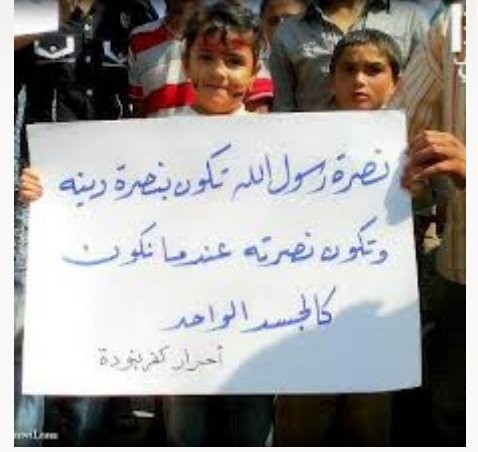 نصرة رسول الله تكون بنصرة دينه
وتكون نصرته عندما نكون
كالجسد الواحد
أحرار كفرنبودة